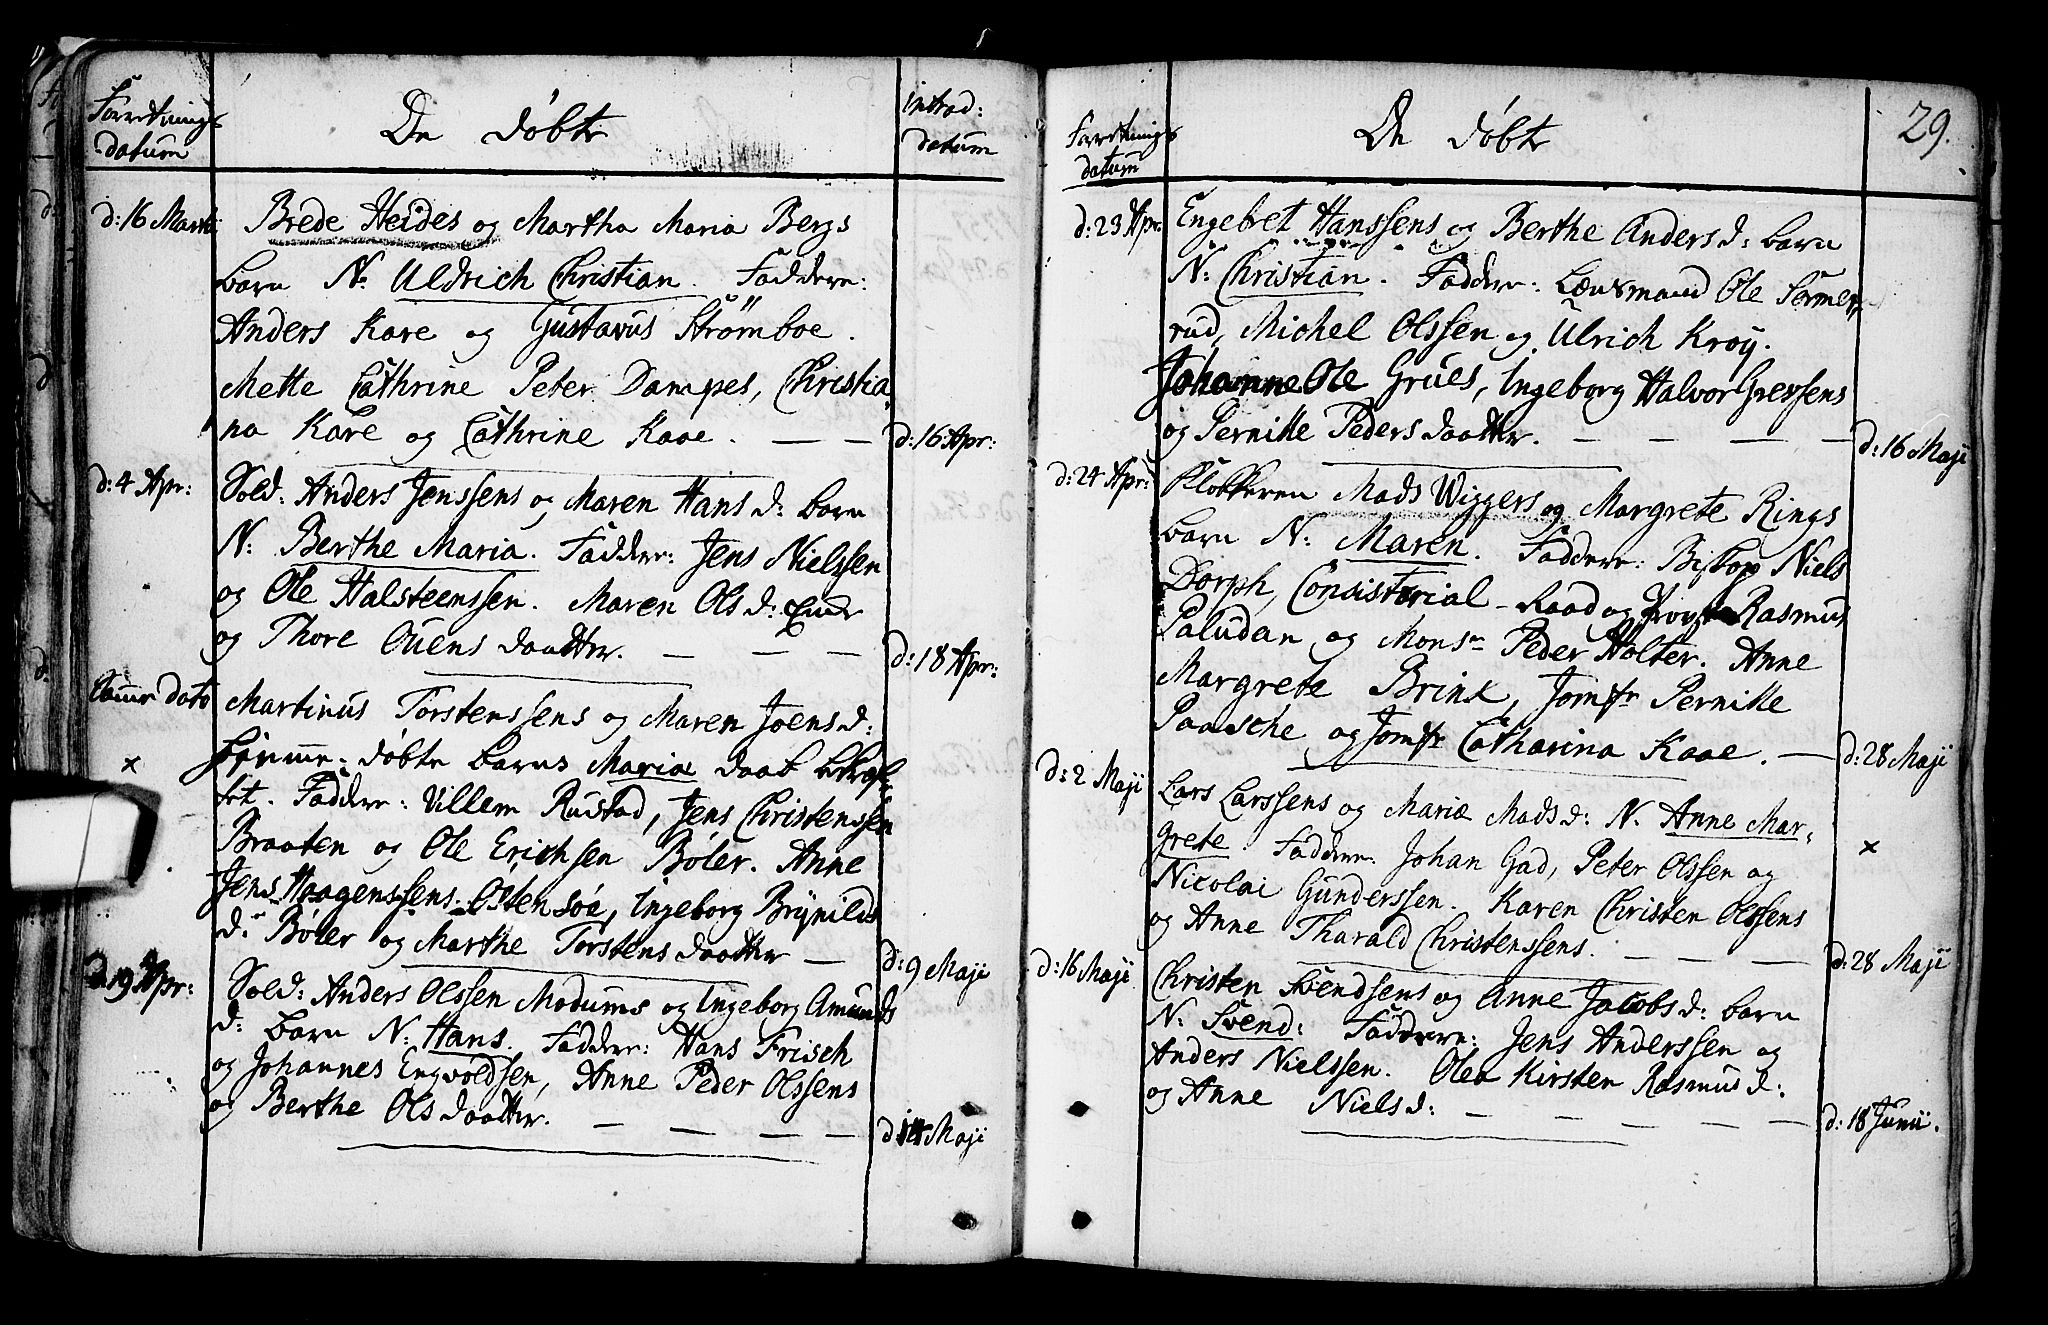 Forretnings
datum
De døbte
introd:
datum
d: 16 Martii
Brede Heides og Martha Maria Bergs
barn N. Uldrich Christian. Faddere:
Anders Kare og Gustavus Strömboe.
Mette Cathrine Peter Dampes, Christia„
na Kare og Cathrine Kaae. — — —
d: 16 Apr:
d: 4 Apr:
Sold: Anders Jenssens og Maren Hans d: barn
N: Berthe Maria. Faddere: Jens Nielssen
og Ole Halsteenssen. Maren Ols d:
og Thore Ouens daatter. — — —
d: 18 Apr:
Same dato
Martinus Torstenssens og Maren Joens d:
hiemme-døbte barns Mariæ daab bekræf„
x
tet. Faddere: Villem Rustad, Jens Christenssen
Braaten og Ole Erichsen Bøler. Anne
Jens Haagenssens Östensöe, Ingeborg Brynilds
d: Bøler og Marthe Torstens daatter —
d: 9 Maji
d. 19 Apr:
Sold: Anders Olssen Modums og Ingeborg Amunds
d: barn N: Hans. Faddere: Hans Frisch
og Johannes Engvoldsen, Anne Peder Olssens
og Berthe Ols daatter. — — — —
d: 14 Maji
Forretnings
datum
De døbte
29.
d: 23 Apr:
Engebret Hanssens og Berthe Anders d: barn
N: Christian. Faddere: Lænsmand Ole Sermer„
rud, Michel Olssen og Ulrich Kroy.
Johanne Ole Grues, Ingeborg Halvor Gressens
og Pernille Peders daatter. — — — —
d: 16 Maji
d: 24 Apr:
Klokkeren Mads Wiggers og Margrete Rings
barn N: Maren. Faddere: Biskop Niels
Dorph, Consistorial-Raad og Provst Rasmus
Paludan og Monsr Peder Holter. Anne
Margrete Brinx, Jomfr Pernille
Paasche og Jomfr Catharina Kaae. —
d: 28 Maji
d: 2 Maji
Lars Larssens og Mariæ Mads d: N. Anne Mar-
grete. Faddere: Johan Gad, Peter Olssen og
x
Nicolai Gunderssen. Karen Christen Olssens
og Anne Tharald Christenssens. — — —
d: 28 Maji
d: 16 Maji
Christen Svendsens og Anne Jacobs d: barn
N: Svend: Faddere: Jens Anderssen og
Anders Nielssen. Olea Kirsten Rasmus d:
og Anne Niels d: — — — —
d: 18 Junii.